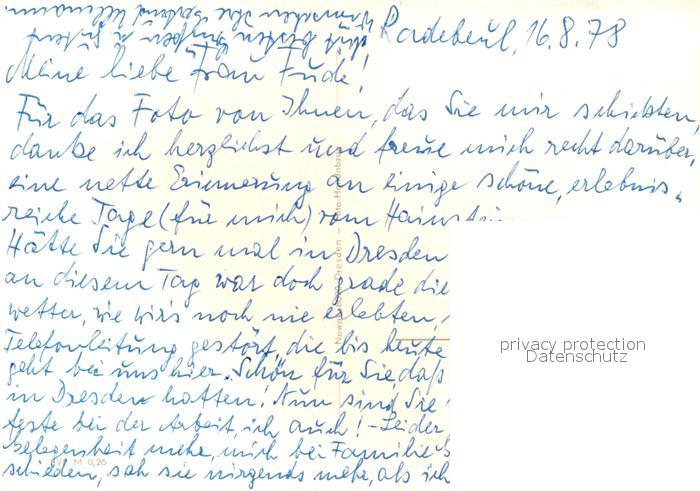 Radebeul, 16.8.78
Meine liebe Frau Fude!
Für das Foto von Ihnen, das Sie mir schickten,
danke ich herzlichst und freue mich recht darüber,
eine nette Erinnerung an einige schöne, erlebnis-
reiche Tage (für mich) vom
Hätte Sie gern mal in Dresden
an diesem Tag war doch grade die
wetter, wie wir's noch nie erlebten,
Telefonleitung gestört, die bis heute
geht bei uns hier. Schön für Sie, daß
in Dresden hatten! Nun sind Sie
feste bei der Arbeit, ich auch! - Leider
Gelegenheit mehr, mich bei Familie
schieden, sah sie nirgends mehr, als ich
M 0,25
privacy protection
Datenschutz